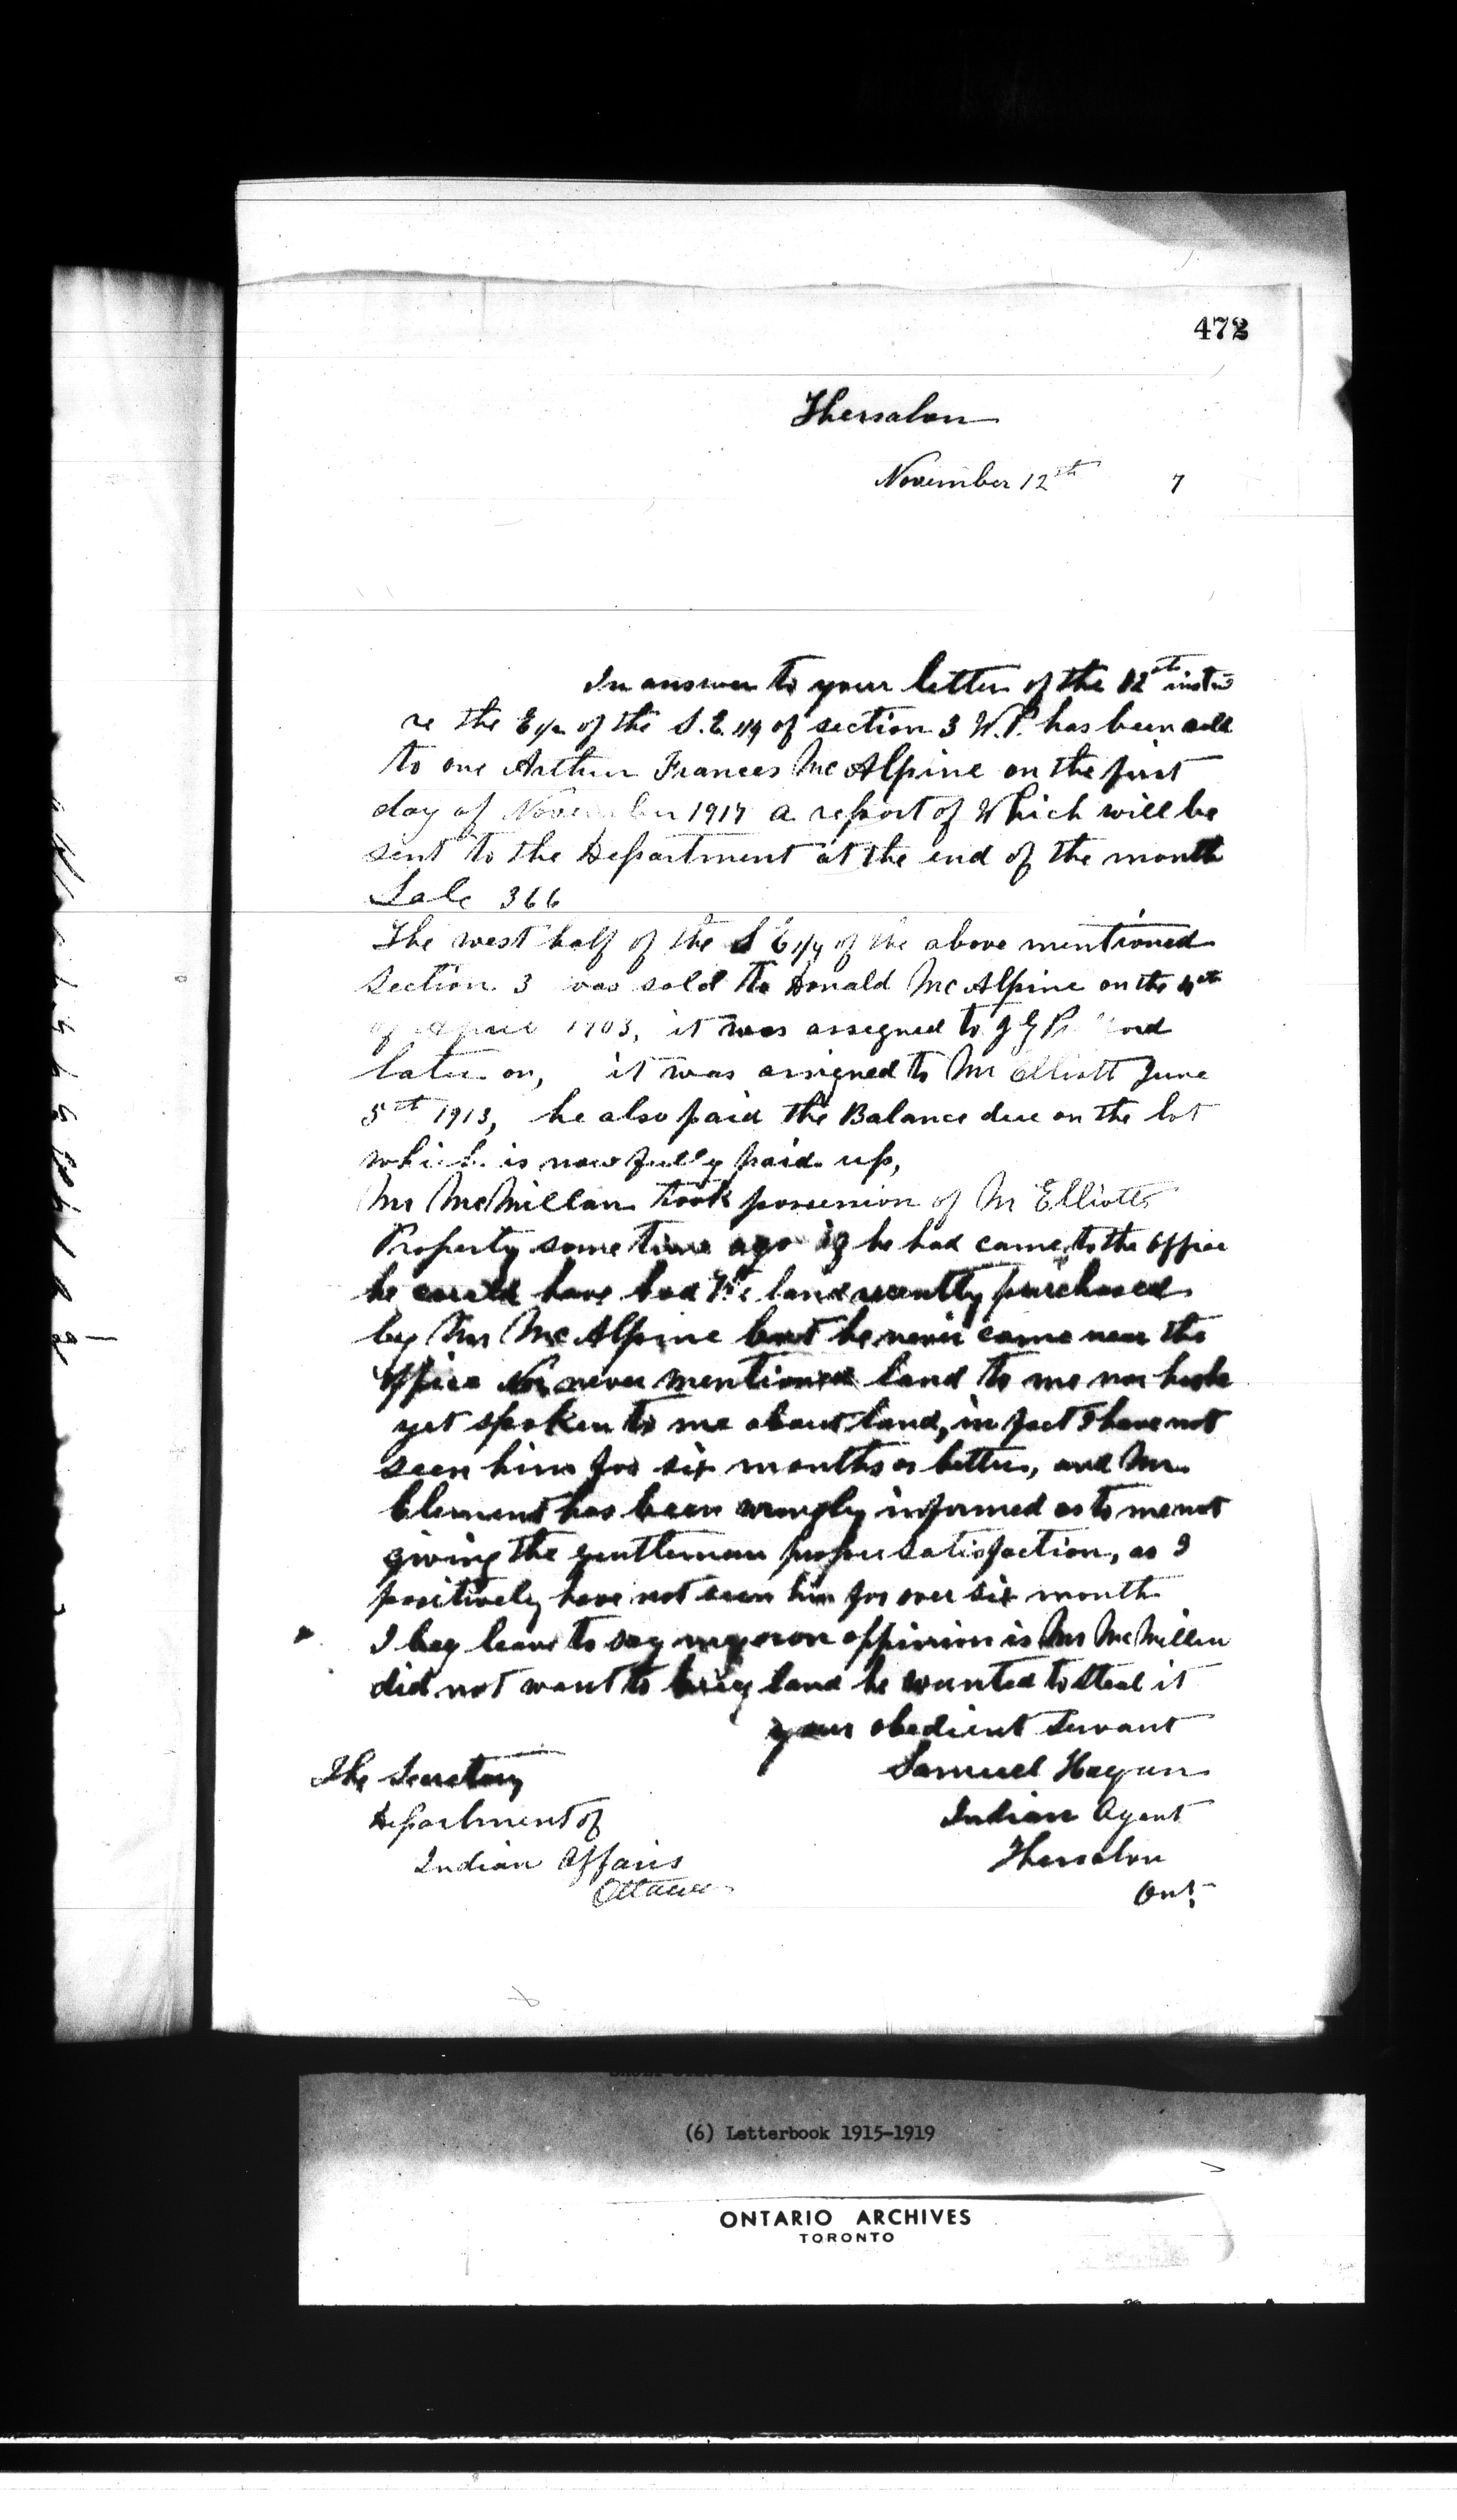 472
Thessalon
November 12th 7
In answer to your letter of the 12th inst
re the E 1/2 of the S.E. 1/4 of section 3 W.P. has been sold
to one Arthur Frances McAlpine on the first
day of November 1917 a report of Which will be
sent to the Department at the end of the month
Sale 366
The west half of the S E 1/4 of the above mentioned
section 3 was sold to Donald McAlpine on the 4th
of April 1903, it was assigned to J G
later on, it was assigned to Mr Elliott June
5th 1913, he also paid the Balance due on the lot
which is now fully paid up,
Mr McMillan took possession of Mr Elliotts
Property some time ago if he had came to the office
he could have had the land recently purchased
by Mr McAlpine but he never came near the
office Nor never mentioned land to me nor has he
yet spoken to me about land, in fact I have not
seen him for six months or better, and Mr
Clement has been wrongly informed as to me not
giving the gentleman proper satisfaction, as I
positively have not seen him for over six month
I beg leave to say my own oppinion is Mr McMillan
did not want to buy land he wanted to steal it
your obedient servant
Samuel Hagan
Indian Agent
Thessalon
Ont
The Secretary
Department of
Indian Affairs
Ottawa
(6) Letterbook 1915-1919
ONTARIO ARCHIVES
TORONTO